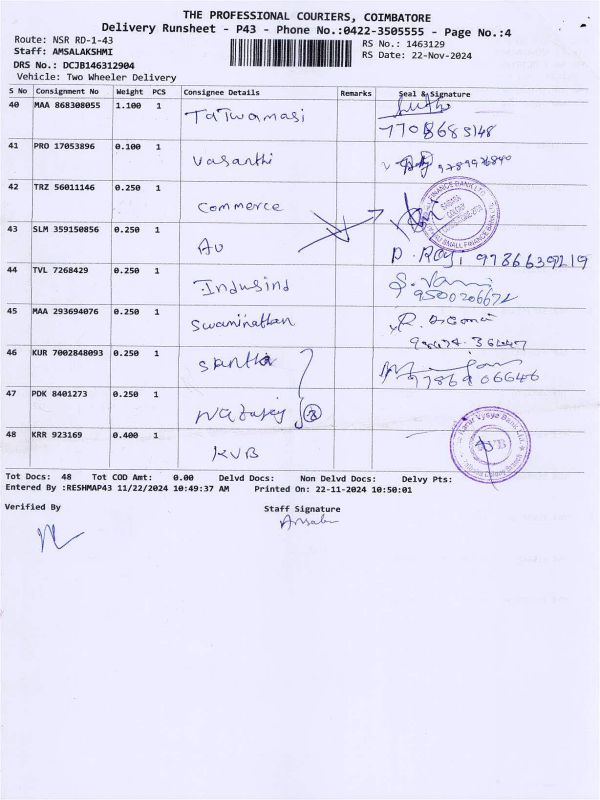 THE PROFESSIONAL COURIERS, COIMBATORE
Delivery Runsheet - P43 - Phone No.:0422-3505555 - Page No.:4
Route: NSR RD-1-43
RS No.: 1463129
Staff: AMSALAKSHMI
RS Date: 22-Nov-2024
DRS No.: DCJB146312904
Vehicle: Two Wheeler Delivery
S No Consignment No Weight PCS Consignee Details Remarks Seal & Signature
40 MAA 868308055 1.100 1 Tatwamasi
41 PRO 17053896 0.100 1 Vasanthi
42 TRZ 56011146 0.250 1 Commerce
43 SLM 359150856 0.250 1 AU
44 TVL 7268429 0.250 1 Indusind
9500206672
45 MAA 293694076 0.250 1 Swaminathan
46 KUR 7002848093 0.250 1
9786906646
47 PDK 8401273 0.250 1
48 KRR 923169 0.400 1 KVB
Tot Docs: 48 Tot COD Amt: 0.00 Delvd Docs: Non Delvd Docs: Delvy Pts:
Entered By :RESHMAP43 11/22/2024 10:49:37 AM Printed On: 22-11-2024 10:50:01
Verified By
Staff Signature